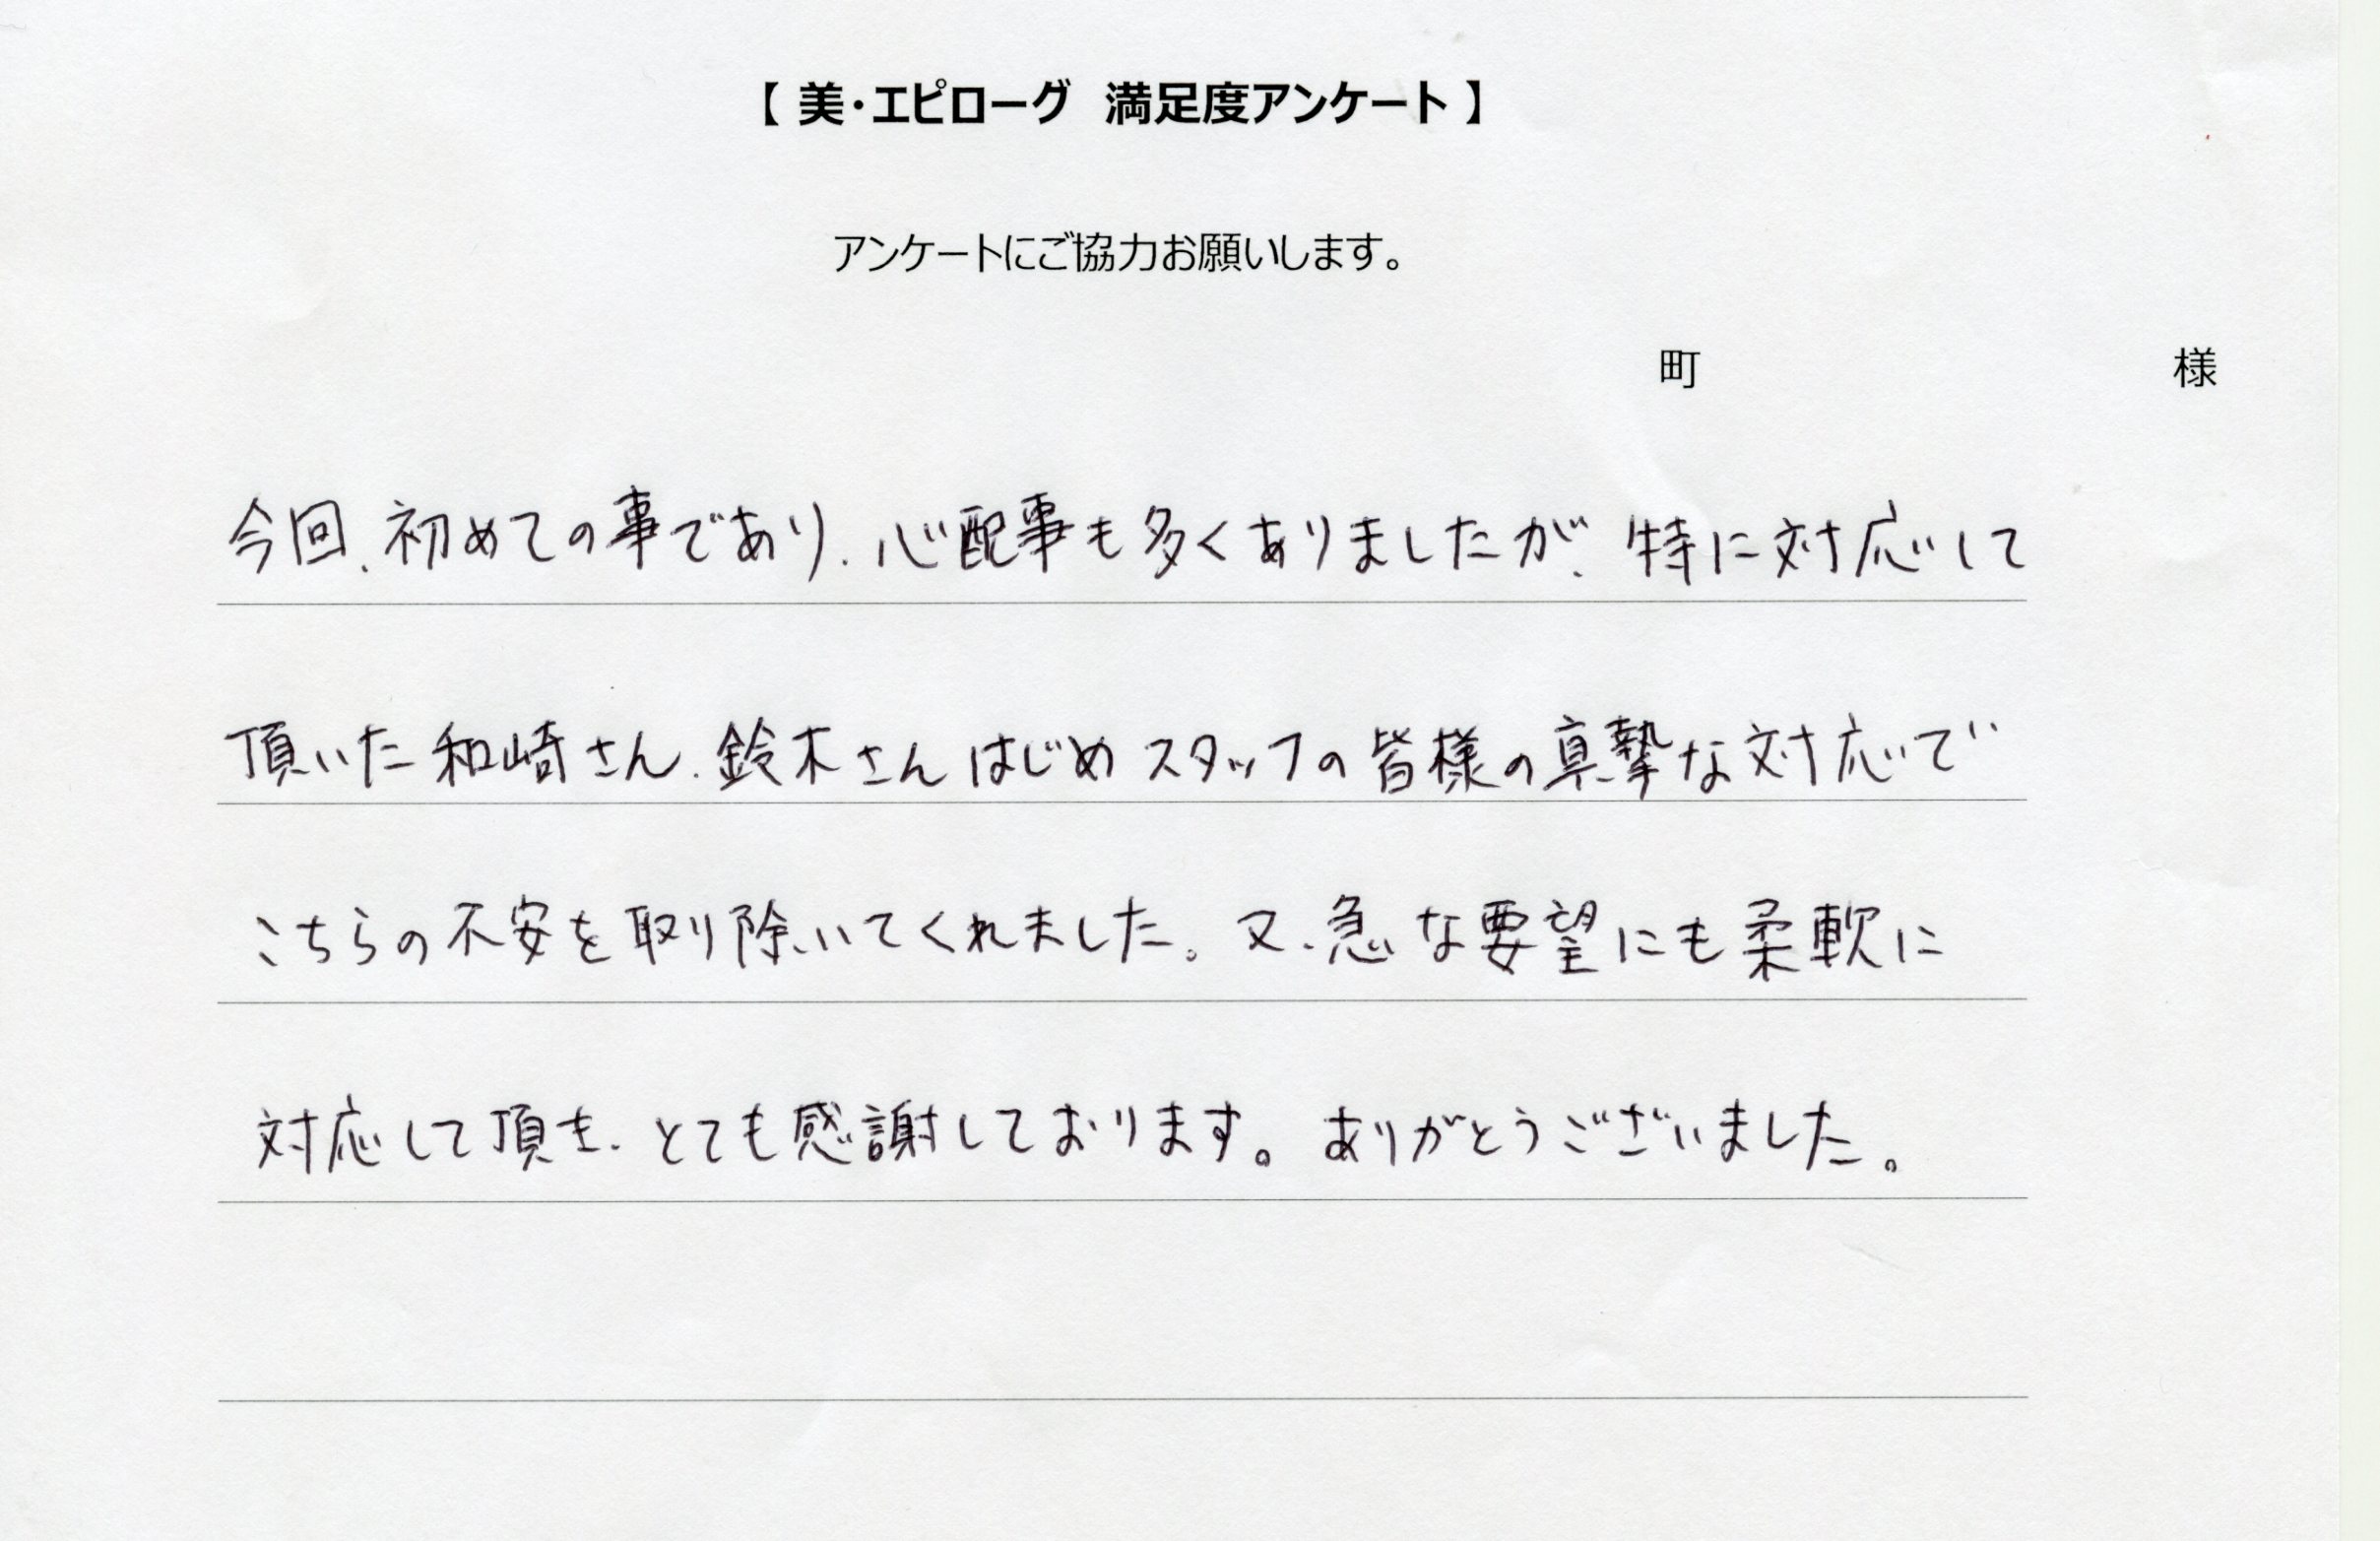 【 美・エピローグ　満足度アンケート 】
アンケートにご協力お願いします。
町　　　　　　　　　　様
今回、初めての事であり、心配事も多くありましたが、特に対応して
頂いた和崎さん、鈴木さんはじめスタッフの皆様の真摯な対応で
こちらの不安を取り除いてくれました。又、急な要望にも柔軟に
対応して頂き、とても感謝しております。ありがとうございました。